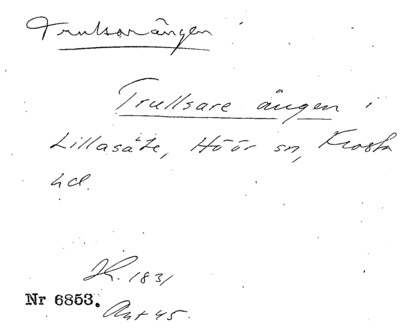 Trulsarängen
Trullsare ängen i
Lillasäte, Höör sn, Frosta
hd.
1831
Nr 6853.
Ant 45.